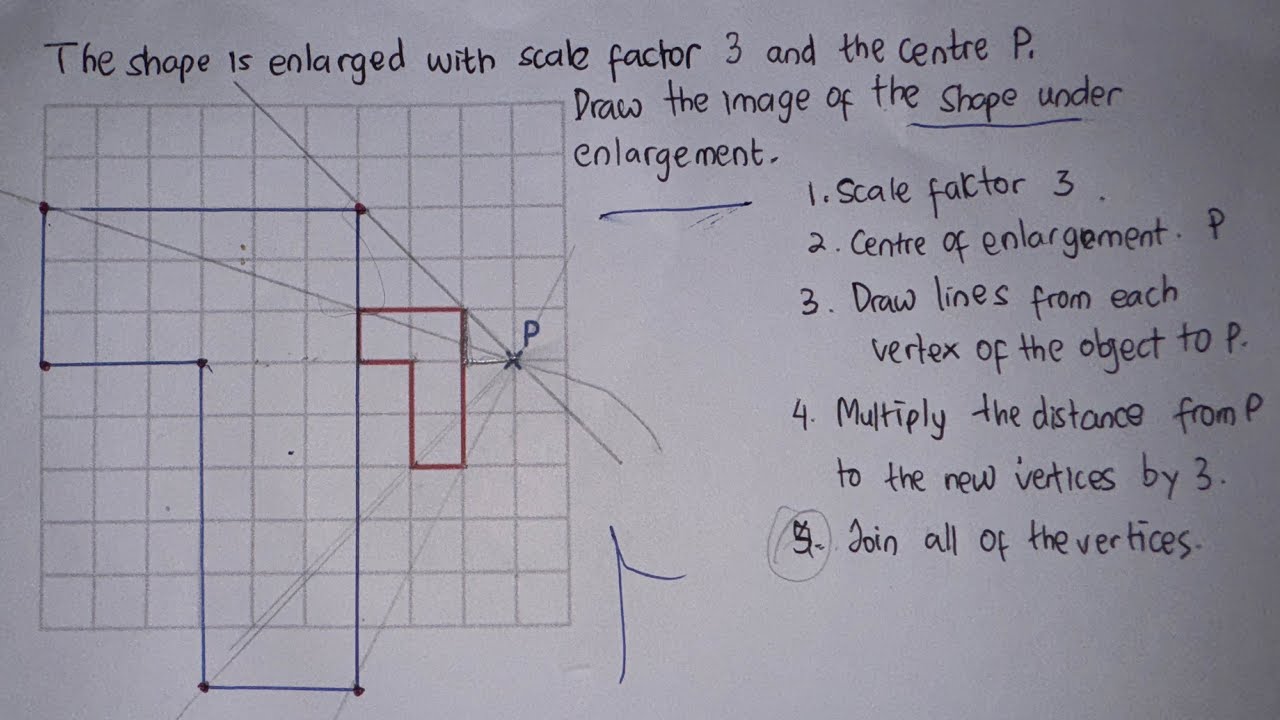 The shape is enlarged with scale factor 3 and the centre P.
Draw the image of the shape under
enlargement.
1. Scale faktor 3.
2. Centre of enlargement. P
3. Draw lines from each
vertex of the object to P.
P
4. Multiply the distance from P
to the new vertices by 3.
5. Join all of the vertices.